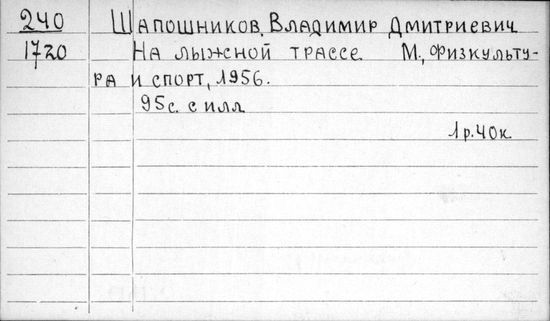 240 Шапошников, Владимир Дмитриевич
1720 На лыжной трассе М., Физкульту-
ра и спорт, 1956.
95с. с илл
1р.40к.